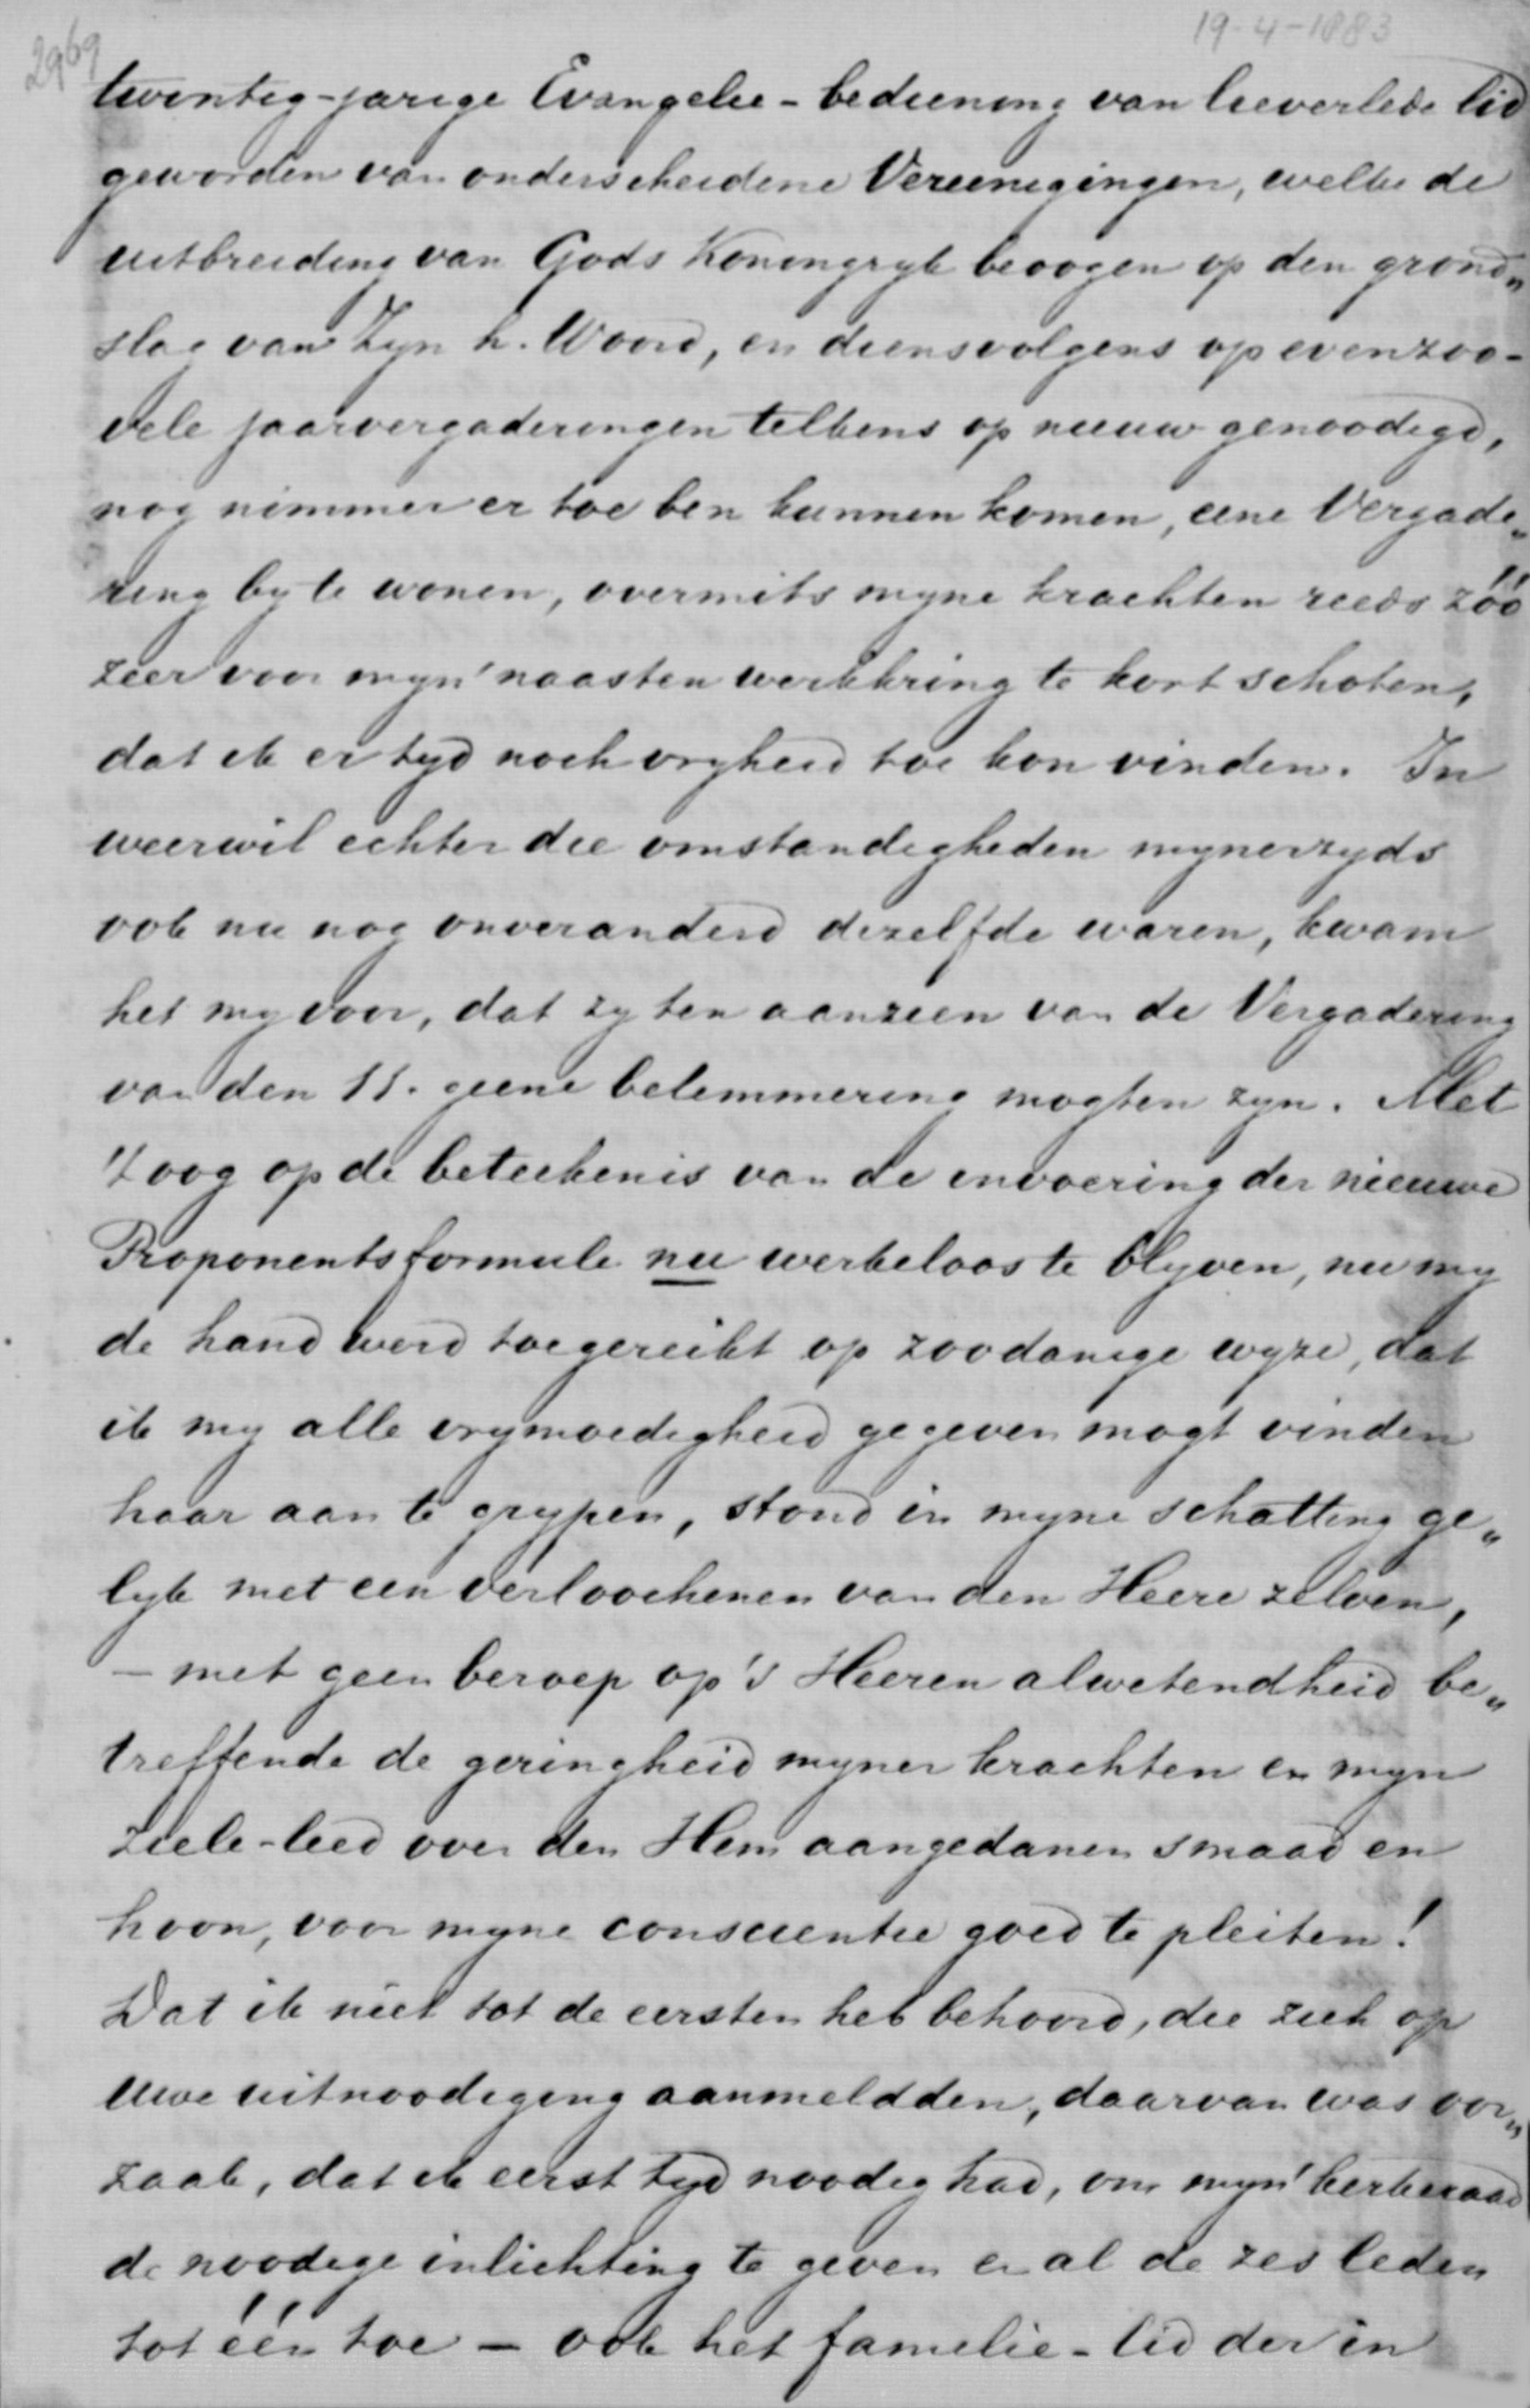 19-4-1883
2969
twintig-jarige Evangelie-bediening van lieverlede lid
geworden van onderscheidene Vereenigingen, welke de
uitbreiding van Gods Koningryk beoogen op den grond„
slag van Zyn h. Woord, en diensvolgens op evenzoo-
vele jaarvergaderingen telkens op nieuw genoodigd,
nog nimmer er toe ben kunnen komen, eene Vergade„
ring by te wonen, overmits myne krachten reeds zóó
zeer voor myn' naasten werkkring te kort schoten,
dat ik er tyd noch vryheid toe kon vinden. In
weerwil echter die omstandigheden mynerzyds
ook nu nog onveranderd dezelfde waren, kwam
het my voor, dat zy ten aanzien van de Vergadering
van den 11. geene belemmering mogten zyn. Met
't oog op de beteekenis van de invoering der nieuwe
Proponentsformule nu werkeloos te blyven, nu my
de hand werd toegereikt op zoodanige wyze, dat
ik my alle vrymoedigheid gegeven mogt vinden
haar aan te grypen, stond in myne schatting ge„
lyk met een verloochenen van den Heere zelven,
— met geen beroep op 's Heeren alwetendheid be„
treffende de geringheid myner krachten en myn
ziele-leed over den Hem aangedanen smaad en
hoon, voor myne conscientie goed te pleiten!
Dat ik niet tot de eersten heb behoord, die zich op
uwe uitnoodiging aanmeldden, daarvan was oor„
zaak, dat ik eerst tyd noodig had, om myn' kerkeraad
de noodige inlichting te geven en al de zes leden
tot één toe — ook het familie-lid der in